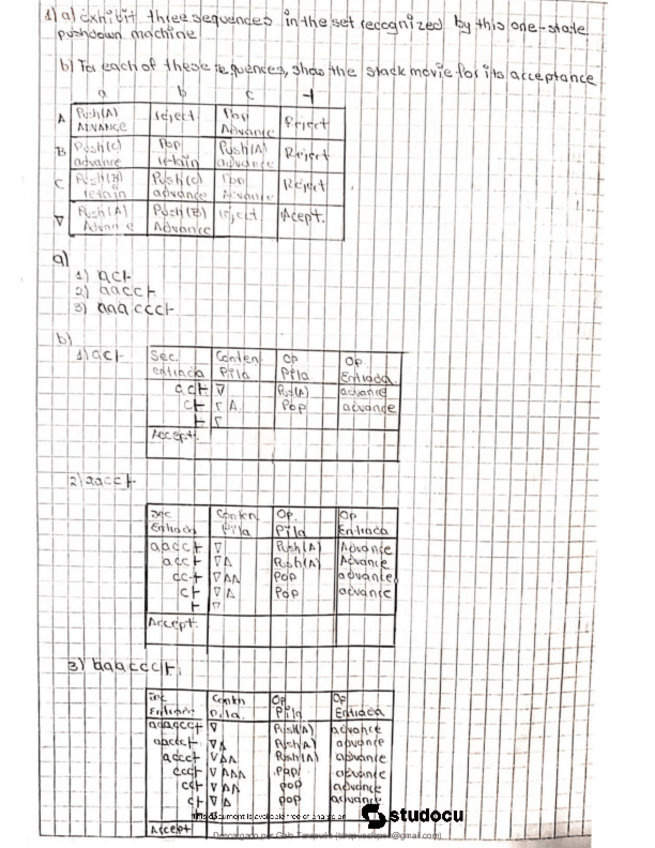 1) a) Exhibit three sequences in the set recognized by this one-state
pushdown machine
b) For each of these sequences, show the stack movie for its acceptance
a b c ⊣
A Push(A) ADVANCE reject Pop Advance Reject
B Push(C) advance Pop retain Push(A) advance Reject
C Push(B) retain Push(C) advance Pop Advance Reject
∇ Push(A) Advance Push(B) Advance reject Acept.
a)
1) ac⊣
2) aacc⊣
3) aaaccc⊣
b)
1) ac⊣
Sec. entrada Conten Pila Op Pila Op Entrada
ac⊣ ∇ Push(A) advance
c⊣ ∇A Pop advance
⊣ ∇
Accept.
2) aacc⊣
Sec Entrada Conten Pila Op. Pila Op Entrada
aacc⊣ ∇ Push(A) Advance
acc⊣ ∇A Push(A) Advance
cc⊣ ∇AA Pop advance
c⊣ ∇A Pop advance
⊣ ∇
Accept.
3) aaaccc⊣
Sec Entrada Conten Pila. Op Pila Op Entrada
aaaccc⊣ ∇ Push(A) advance
aaccc⊣ ∇A Push(A) advance
accc⊣ ∇AA Push(A) advance
ccc⊣ ∇AAA Pop advance
cc⊣ ∇AA pop advance
c⊣ ∇A pop advance
Accept
This document is available free of charge on
studocu
Descargado por
@gmail.com)